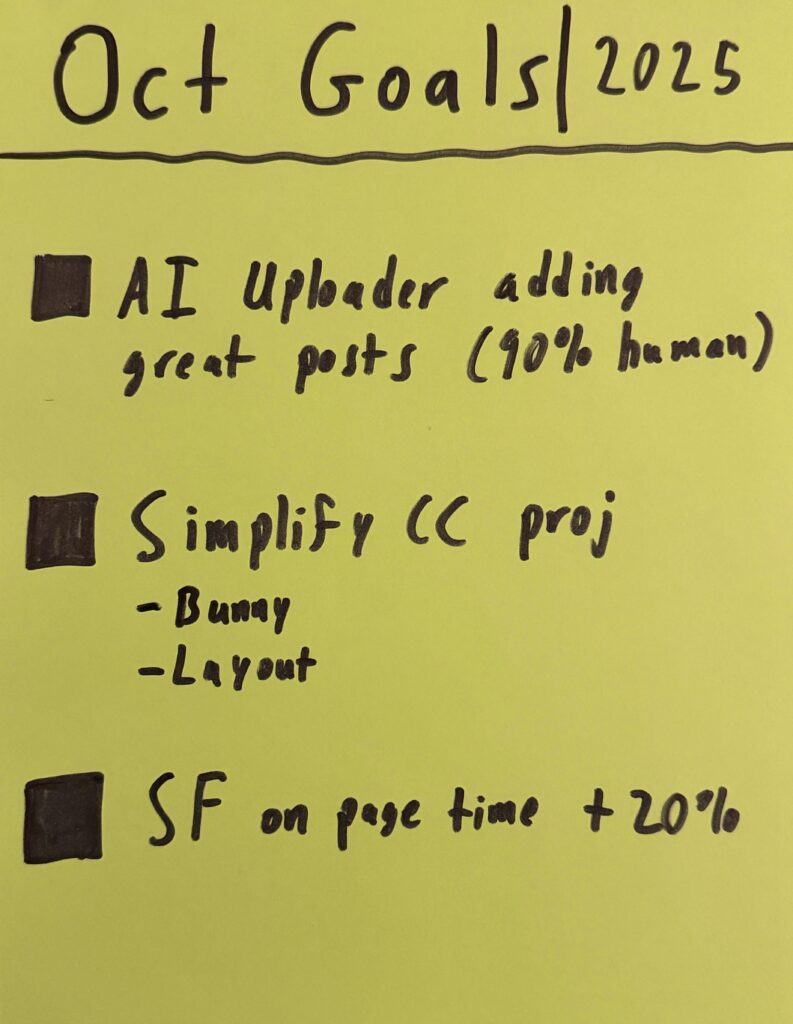 Oct Goals | 2025
AI Uploader adding
great posts (90% human)
Simplify CC proj
- Bunny
- Layout
SF on page time + 20%